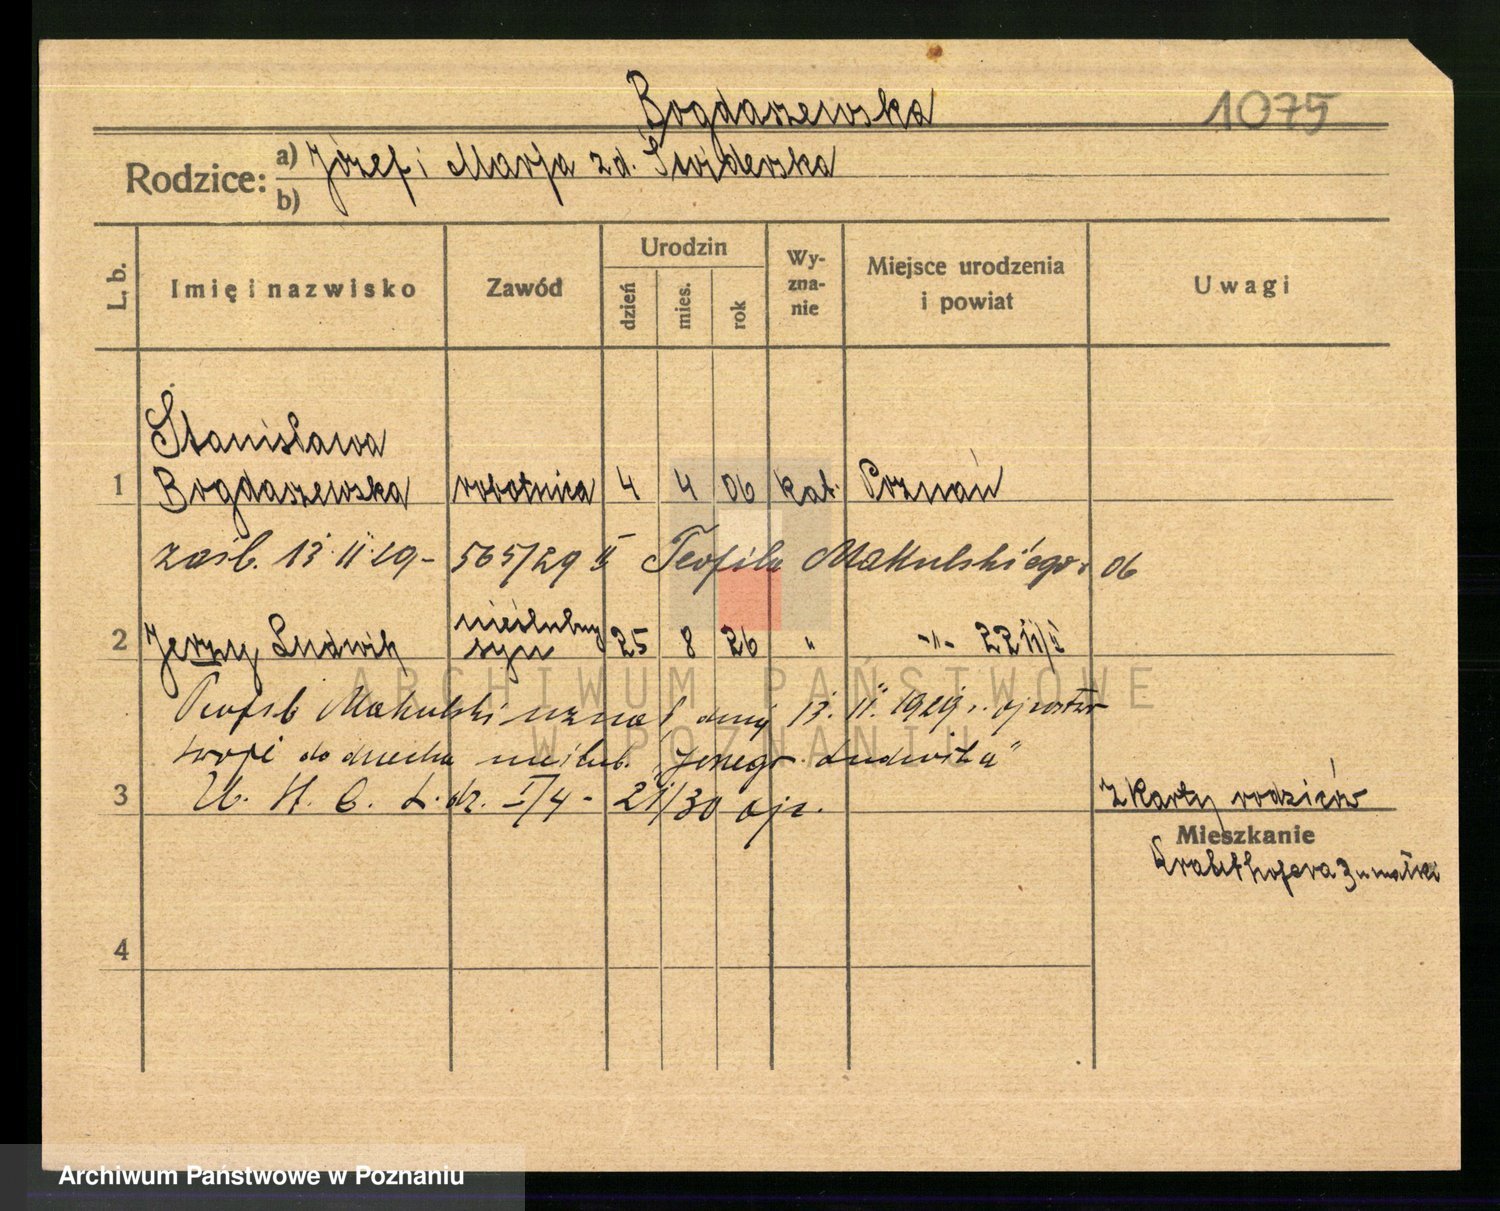 Bogdaszewska
1075
Rodzice: a) Józef i Marja zd. Świderska
b)
L. b.
Imię i nazwisko
Zawód
Urodzin
dzień
mies.
rok
Wy-
zna-
nie
Miejsce urodzenia
i powiat
Uwagi
Stanisława
1 Bogdaszewska robotnica 4 4 06 kat. Poznań
zaśl. 13 II 29 - 565/29 II Teofila Makulskiego 06
nieślubny
2 Jerzy Ludwik syn 25 8 26 " -"- 22
Teofil Makulski uznał dnia 13. II. 1929 r. ojcostwo
swoje do dziecka nieślub. "Jerzego Ludwika"
3 U. S. C. L. dz. I/4 - 21/30
z karty rodziców
Mieszkanie
u matki
4
ARCHIWUM PAŃSTWOWE
W POZNANIU
Archiwum Państwowe w Poznaniu